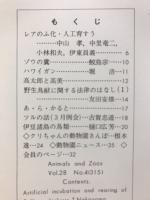 もくじ
レアのふ化・人工育すう
中山 孝，中里竜二，
小林和夫，伊東員義……6
ゾウの糞……鮫島宗……10
ハワイガン……堀 浩……10
高太郎と高美……14
野生鳥獣に関する法律のはなし(1)
……友田安雄……
あ・ら・かると……17
ツルの話(3月例会)…古賀忠道…18
伊豆諸島の鳥類……樋口広芳…20
◇クリちゃんの動物園さんぽ…根本
進…24 ◇動物園ニュース…35 ◇
会員のページ…32
Animals and Zoos
Vol.28 No.4(315)
Contents.
Artificial incubation and rearing of